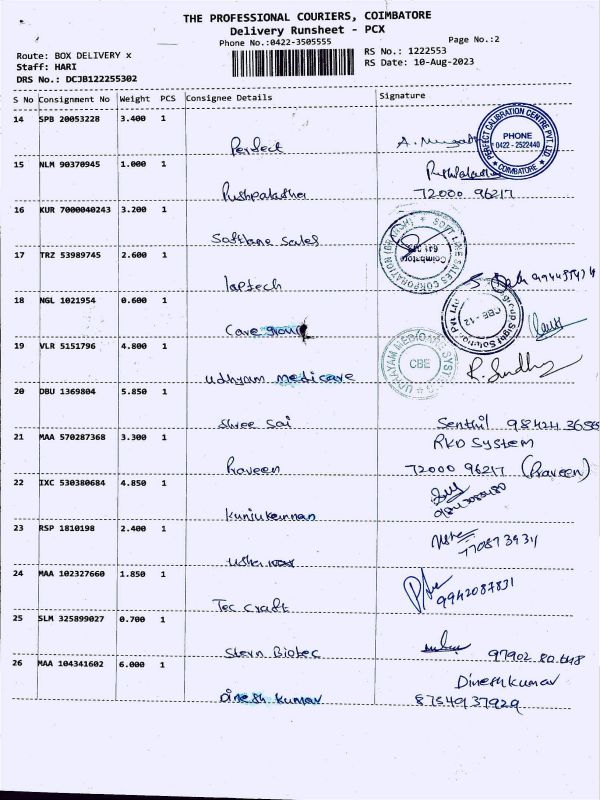 THE PROFESSIONAL COURIERS, COIMBATORE
Delivery Runsheet - PCX
Phone No.:0422-3505555
Page No.:2
Route: BOX DELIVERY x
Staff: HARI
DRS No.: DCJB122255302
RS No.: 1222553
RS Date: 10-Aug-2023
S No Consignment No Weight PCS Consignee Details Signature
14 SPB 20053228 3.400 1
Perfect
PERFECT CALIBRATION CENTRE PVT LTD
PHONE
0422 - 2522440
COIMBATORE
15 NLM 90370945 1.000 1
Pushpalatha
72000 96217
16 KUR 7000040243 3.200 1
Softlane Sales
SOFT LINE SALES CORPORATION (BRANCH)
Coimbatore
17 TRZ 53989745 2.600 1
laptech
18 NGL 1021954 0.600 1
Care group
CBE - 12
19 VLR 5151796 4.800 1
Udhyam medicare
UDHAYAM MEDICARE SYSTEMS
CBE
R. Sindhu
20 DBU 1369804 5.850 1
Shree Sai
Senthil
21 MAA 570287368 3.300 1
RKD System
Praveen
72000 96217 (Praveen)
22 IXC 530380684 4.850 1
Kunjukannan
23 RSP 1810198 2.400 1
Usha
24 MAA 102327660 1.850 1
Tec Craft
9942087831
25 SLM 325899027 0.700 1
Stern Biotec
26 MAA 104341602 6.000 1
Dinesh kumar
Dinesh kumar
87549 37929